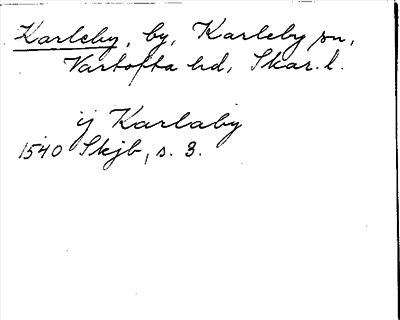 Karleby, by, Karleby sn,
Vartofta hd, Skar. l.
ij Karlaby
1540 Skjb, s. 3.